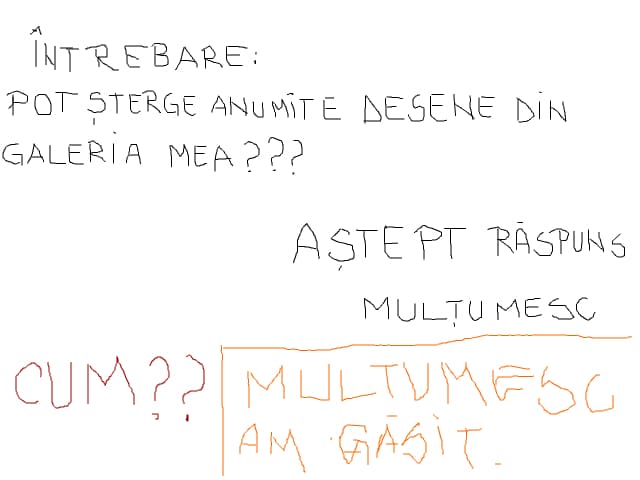 ÎNTREBARE:
POT ȘTERGE ANUMITE DESENE DIN
GALERIA MEA???
AȘTEPT RĂSPUNS
MULȚUMESC
CUM??
MULTUMESC
AM GĂSIT.